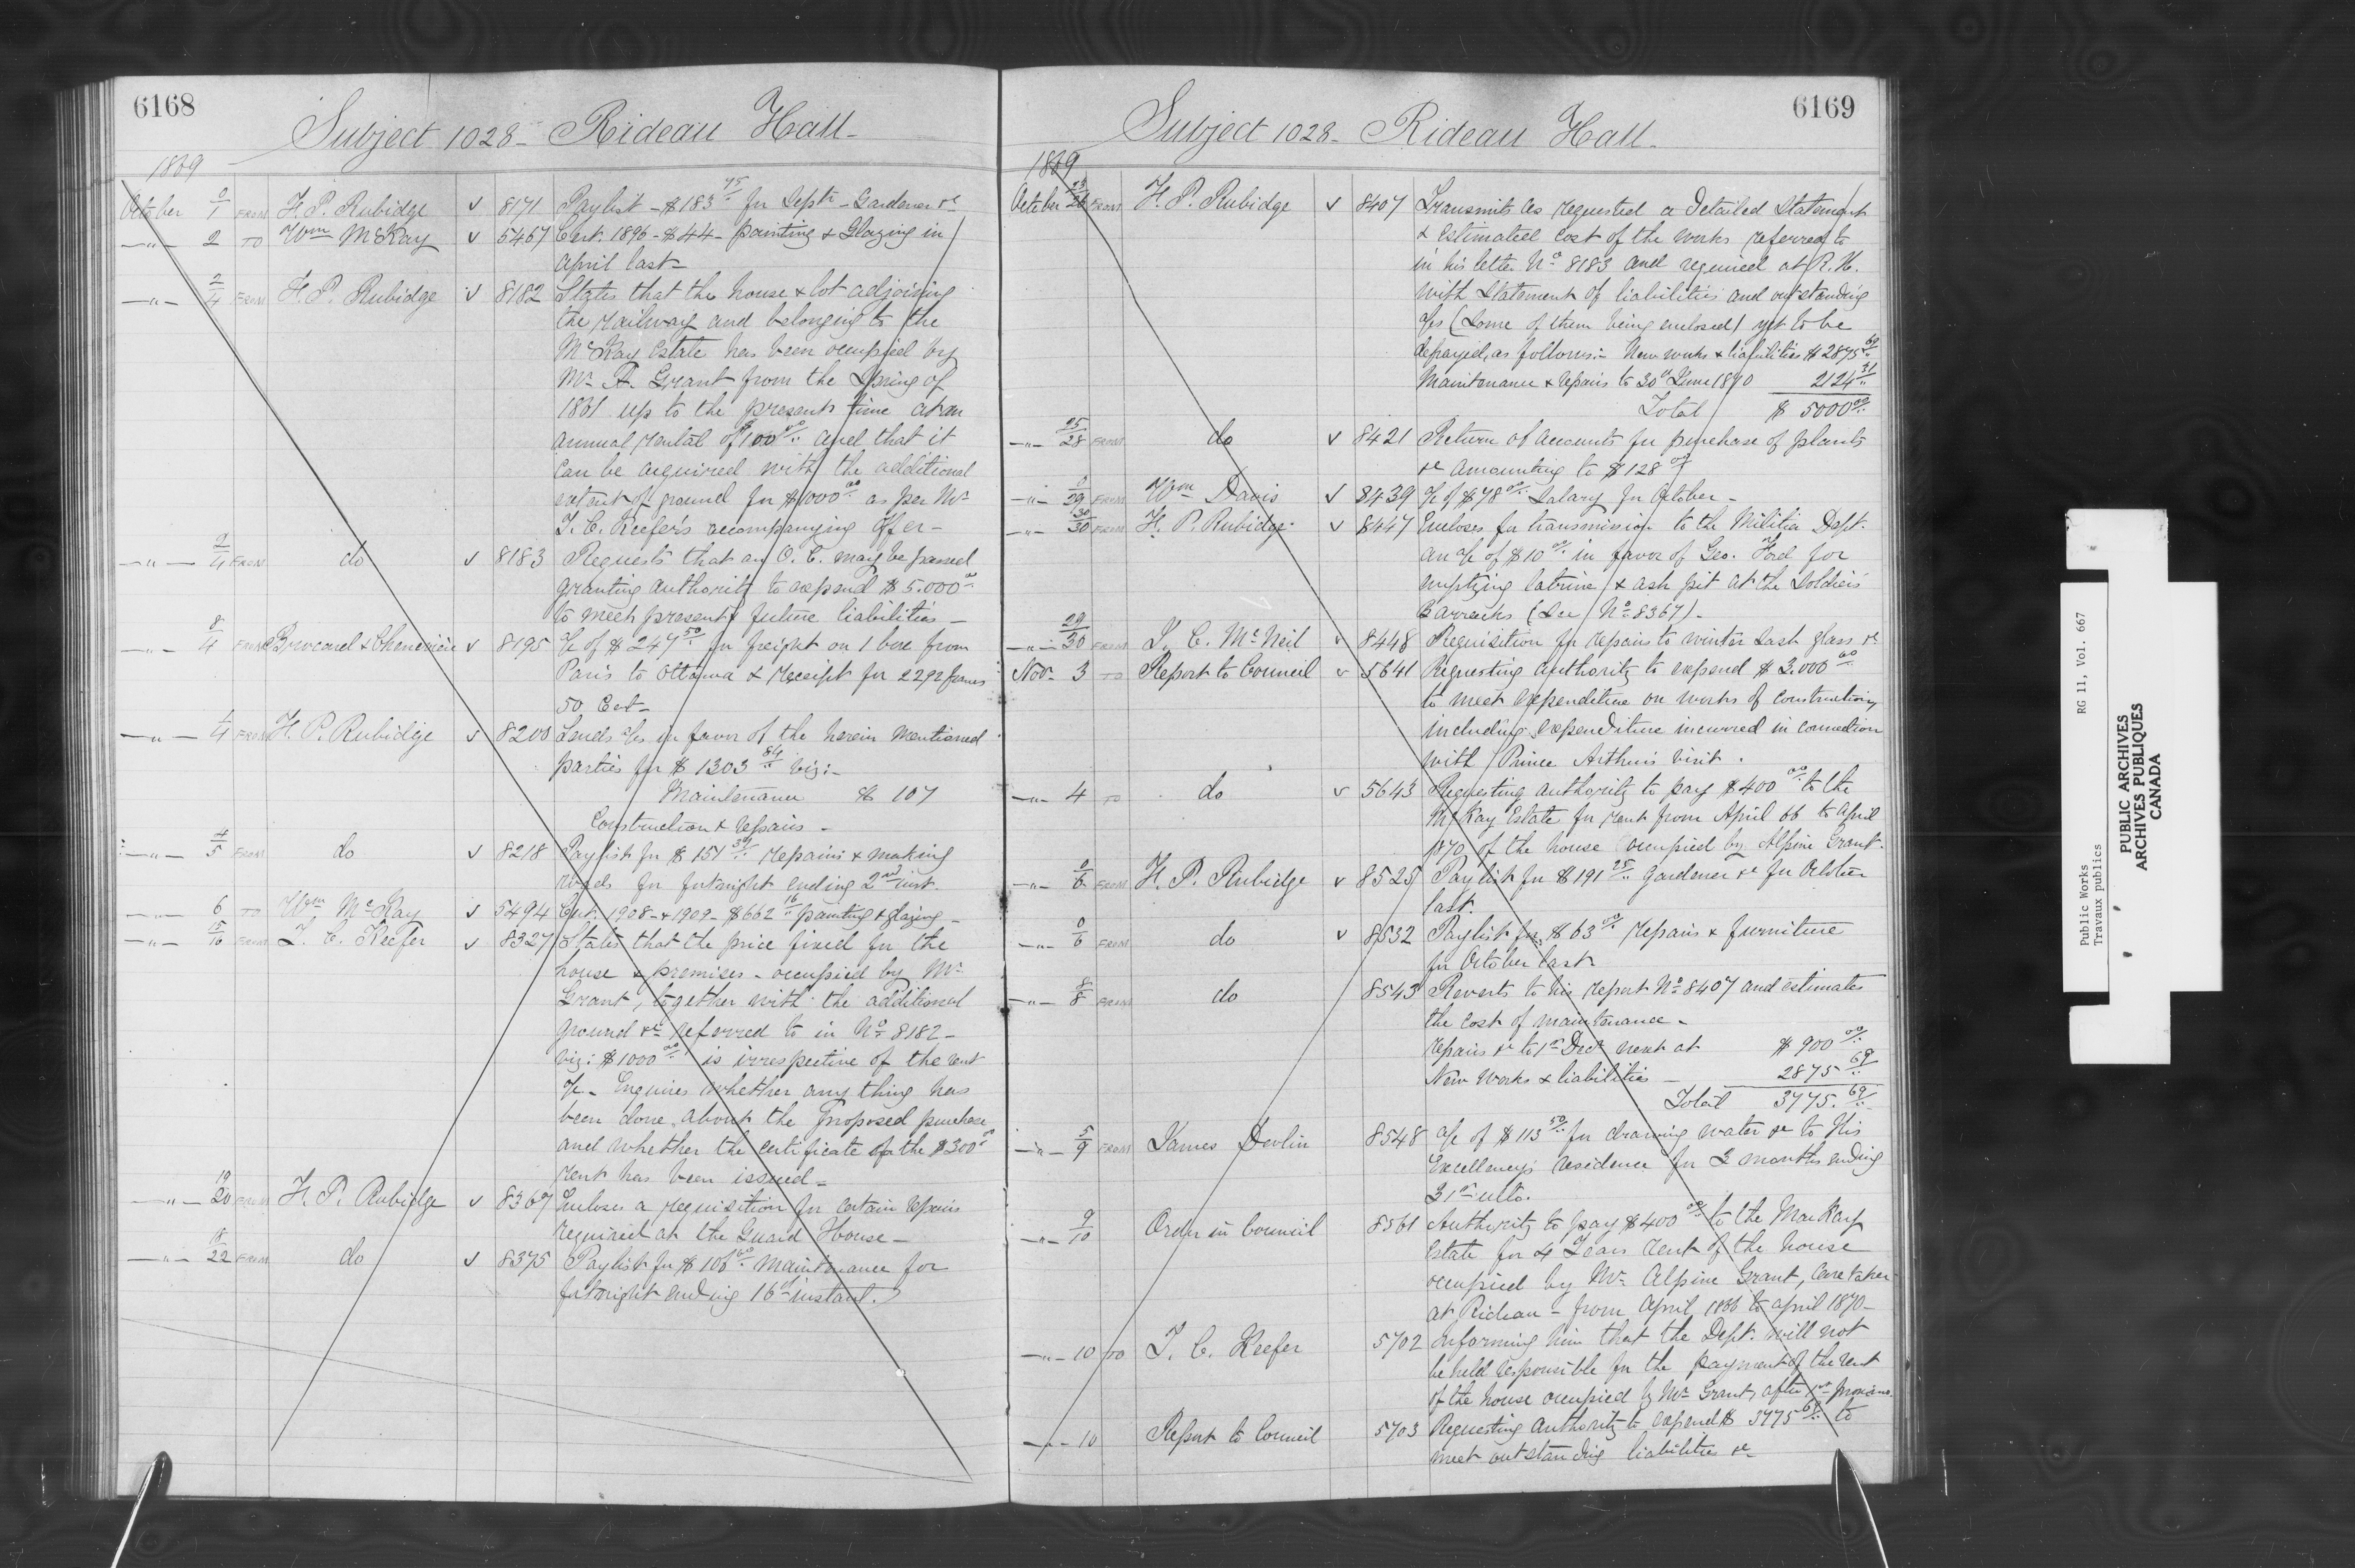 6168
Subject 1028 - Rideau Hall -
1869
October 0/1 FROM F. P. Rubidge v 8171 Paylist - $183 75/.. for Septr - Gardener &c
-"- 2 TO Wm McKay v 5467 Cert. 1896 - $44 - painting & Glazing in
April last -
-"- 2/4 FROM F. P. Rubidge v 8182 States that the house & lot adjoining
the railway and belonging to the
McKay Estate has been occupied by
Mr A. Grant from the Spring of
1861 up to the present time at an
annual rental of $100 00/.. and that it
can be acquired with the additional
extent of ground for $1000 00 as per Mr
T. C. Keefer's accompanying offer -
-"- 2/4 FROM do v 8183 Requests that an O. C. may be passed
granting authority to expend $5.000 00
to meet present & future liabilities -
-"- 8/4 FROM v 8195 a/c of $247 50/.. for freight on 1 box from
Paris to Ottawa & receipt for 2292 francs
50 Cent -
-"- 4/4 FROM F. P. Rubidge v 8200 Sends a/cs in favor of the herein mentioned
parties for $1303 84/.. viz:-
Maintenance $ 107
Construction & repairs -
-"- 4/5 FROM do v 8218 Paylist for $151 39/.. repairs & making
roads for fortnight ending 2nd inst.
-"- 6 TO Wm McKay v 5494 Cert. 1908 - & 1909 - $662 16/.. painting & glazing -
-"- 15/16 FROM T. C. Keefer v 8327 States that the price fixed for the
house & premises - occupied by Mr
Grant, together with the additional
ground &c referred to in No 8182 -
viz: $1000 00/.. is irrespective of the rent
a/c - Enquires whether any thing has
been done about the proposed purchase
and whether the certificate of the $300 00
rent has been issued -
-"- 19/20 FROM F. P. Rubidge v 8367 Encloses a requisition for certain repairs
required at the Guard House -
-"- 18/22 FROM do v 8375 Paylist for $106 60/.. maintenance for
fortnight ending 16th instant.
6169
Subject 1028 - Rideau Hall -
1869
October 23/26 FROM F. P. Rubidge v 8407 Transmits as requested a detailed Statement
& estimated cost of the works referred to
in his letter No 8183 and required at R. H.
with statement of liabilities and outstanding
a/cs (some of them being enclosed) yet to be
defrayed, as follows:- New works & liabilities $2875 69/..
Maintenance & repairs to 30th June 1870 2124 31/..
Total $ 5000 00/..
-"- 25/28 FROM do v 8421 Return of accounts for purchase of plants
&c amounting to $128 00
-"- 0/29 FROM Wm Davis v 8439 a/c of $78 00/.. Salary for October -
-"- 30/30 FROM F. P. Rubidge v 8447 Encloses for transmission to the Militia Dept.
an a/c of $10 00/.. in favor of Geo. Ford for
emptying latrine & ash pit at the Soldiers
Barracks (See No 8367) -
-"- 29/30 FROM T. C. McNeil v 8448 Requisition for repairs to winter sash glass &c
Nov. 3 TO Report to Council v 5641 Requesting authority to expend $3.000 00/..
to meet expenditure on works of construction,
including expenditure incurred in connection
with Prince Arthur's visit.
-"- 4 TO do v 5643 Requesting authority to pay $400 00/.. to the
McKay Estate for rent from April 66 to April
1870 of the house occupied by Alpine Grant.
-"- 0/6 FROM F. P. Rubidge v 8525 Paylist for $191 25/.. gardener &c for October
last.
-"- 0/6 FROM do v 8532 Paylist for $63 00/.. repairs & furniture
for October last
-"- 8/8 FROM do 8543 Reverts to his report No 8407 and estimates
the cost of maintenance -
repairs &c to 1st Decr next at $ 900 00/..
New Works & liabilities - 2875 69/..
Total 3775. 69/..
-"- 5/9 FROM James Devlin 8548 a/c of $113 50/.. for drawing water &c to His
Excellency's residence for 3 months ending
31st ulto.
-"- 9/10 Order in Council 8561 Authority to pay $400 00/.. to the MacKay
Estate for 4 Years rent of the house
occupied by Mr Alpine Grant, Caretaker
at Rideau - from April, 1866 to April 1870 -
-"- 10 TO T. C. Keefer 5702 Informing him that the Dept. will not
be held responsible for the payment of the rent
of the house occupied by Mr Grant, after 1st proximo.
-"- 10 Report to Council 5703 Requesting authority to expend $ 3775 69/.. to
meet outstanding liabilities &c
Public Works RG 11, Vol. 667
Travaux publics
PUBLIC ARCHIVES
ARCHIVES PUBLIQUES
CANADA